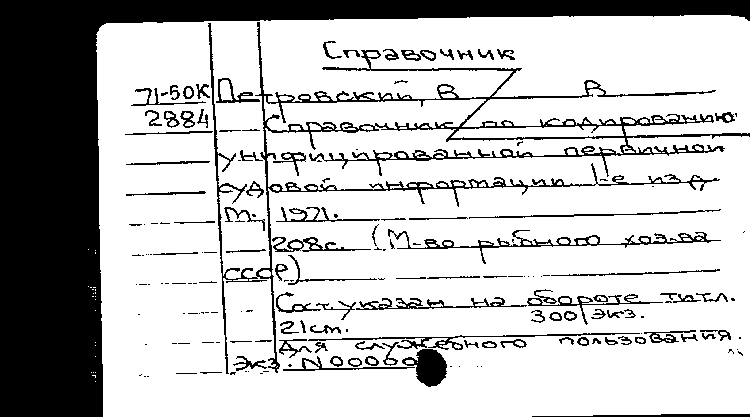 Справочник
71-50К Петровский, В В
2884 Справочник по кодированию
унифицированной первичной
судовой информации 1-е изд
М., 1971.
208с. (М-во рыбного хоз-ва
СССР)
Сост. указан на обороте титл.
21см. 300 экз.
Для служебного пользования.
Экз. N 00000